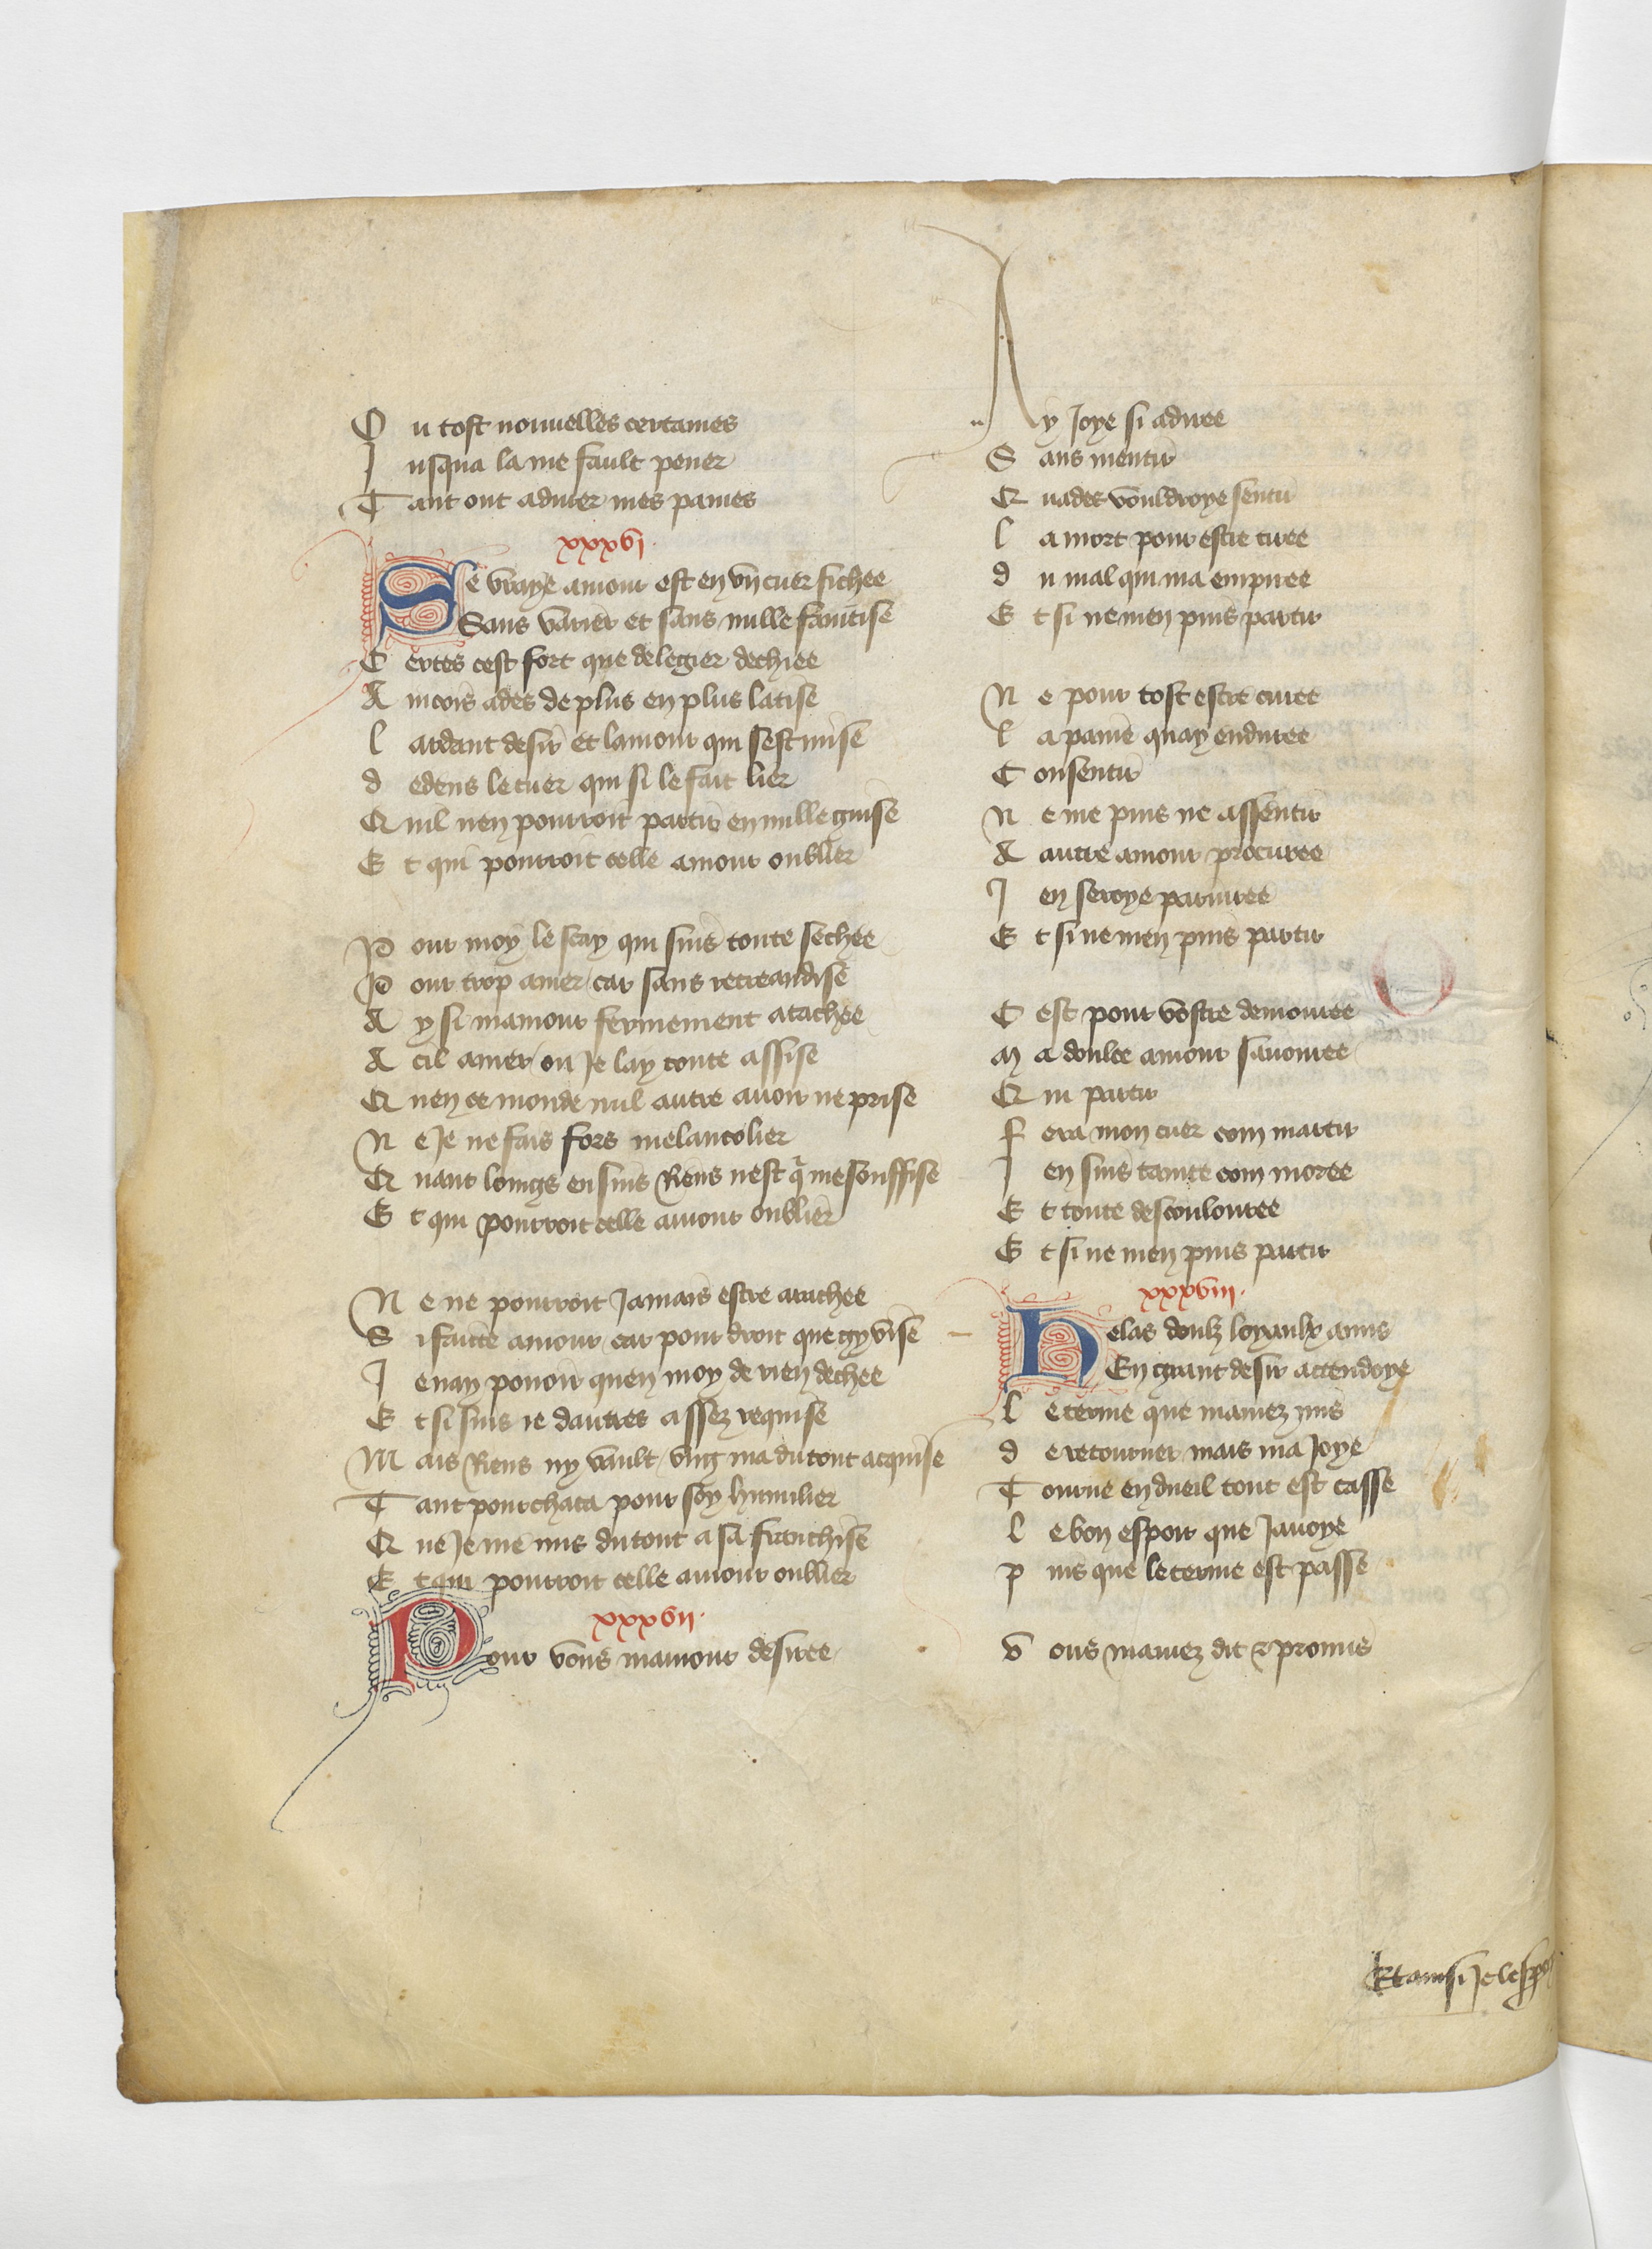 Ou tost nouuelles certaines
Jusqua la me fault pener
Tant ont a durer mes paines
xxxvj.
Se vraye amour est en vn cuer fichee
Sans varier et sans nulle faintise
Certes cest fort que de legier dechiee
Aincois ades de plus en plus latise
lardant desir et lamour qui sest mise
dedens le cuer qui si le fait lier
Quil nen pourroit partir en nulle guise
Et qui pourroit telle amour oublier
Pour moy le scay qui suis toute sechee
Pour trop amer car sans recreandise
Ay si mamour fermement atachee
A cil amer ou Je lay toute assise
Quen ce monde nul autre auoir ne prise
Ne Je ne fais fors melancolier
Quant loings en suis Riens nest q me souffise
Et qui pourroit telle amour oublier
Ne ne pourroit Jamais estre arachee
Si faicte amour car pour droit que gy vise
Je nay pouoir quen moy de rien dechee
Et si suis ie dautres assez requise
Mais Riens ny vault vng ma du tout acquise
Tant pourchaca pour soy humilier
Que Je me mis du tout a sa franchise
Et qui pourroit telle amour oublier
xxxvii.
Pour vous mamour desiree
Ay Joye si aduree
Sans mentir
Quades vouldroye sentir
la mort pour estre tiree
du mal qui ma empiree
Et si ne men puis partir
Ne pour tost estre curee
la paine quay enduree
Consentir
Ne me puis ne assentir
A autre amour procuree
Jen seroye pariuree
Et si ne men puis partir
Cest pour vostre demouree
Ma doulce amour sauouree
Qui partir
Fera mon cuer com martir
Jen suis tainte com moree
Et toute descoulouree
Et si ne men puis partir
xxxviii.
Helas doulz loyaulx amis
En grant desir attendoye
le terme que mauiez mis
de retourner mais ma Joye
Tourne en dueil tout est casse
le bon espoir que Jauoye
puis que le terme est passe
vous mauiez dit & promis
Et ainsi Je le